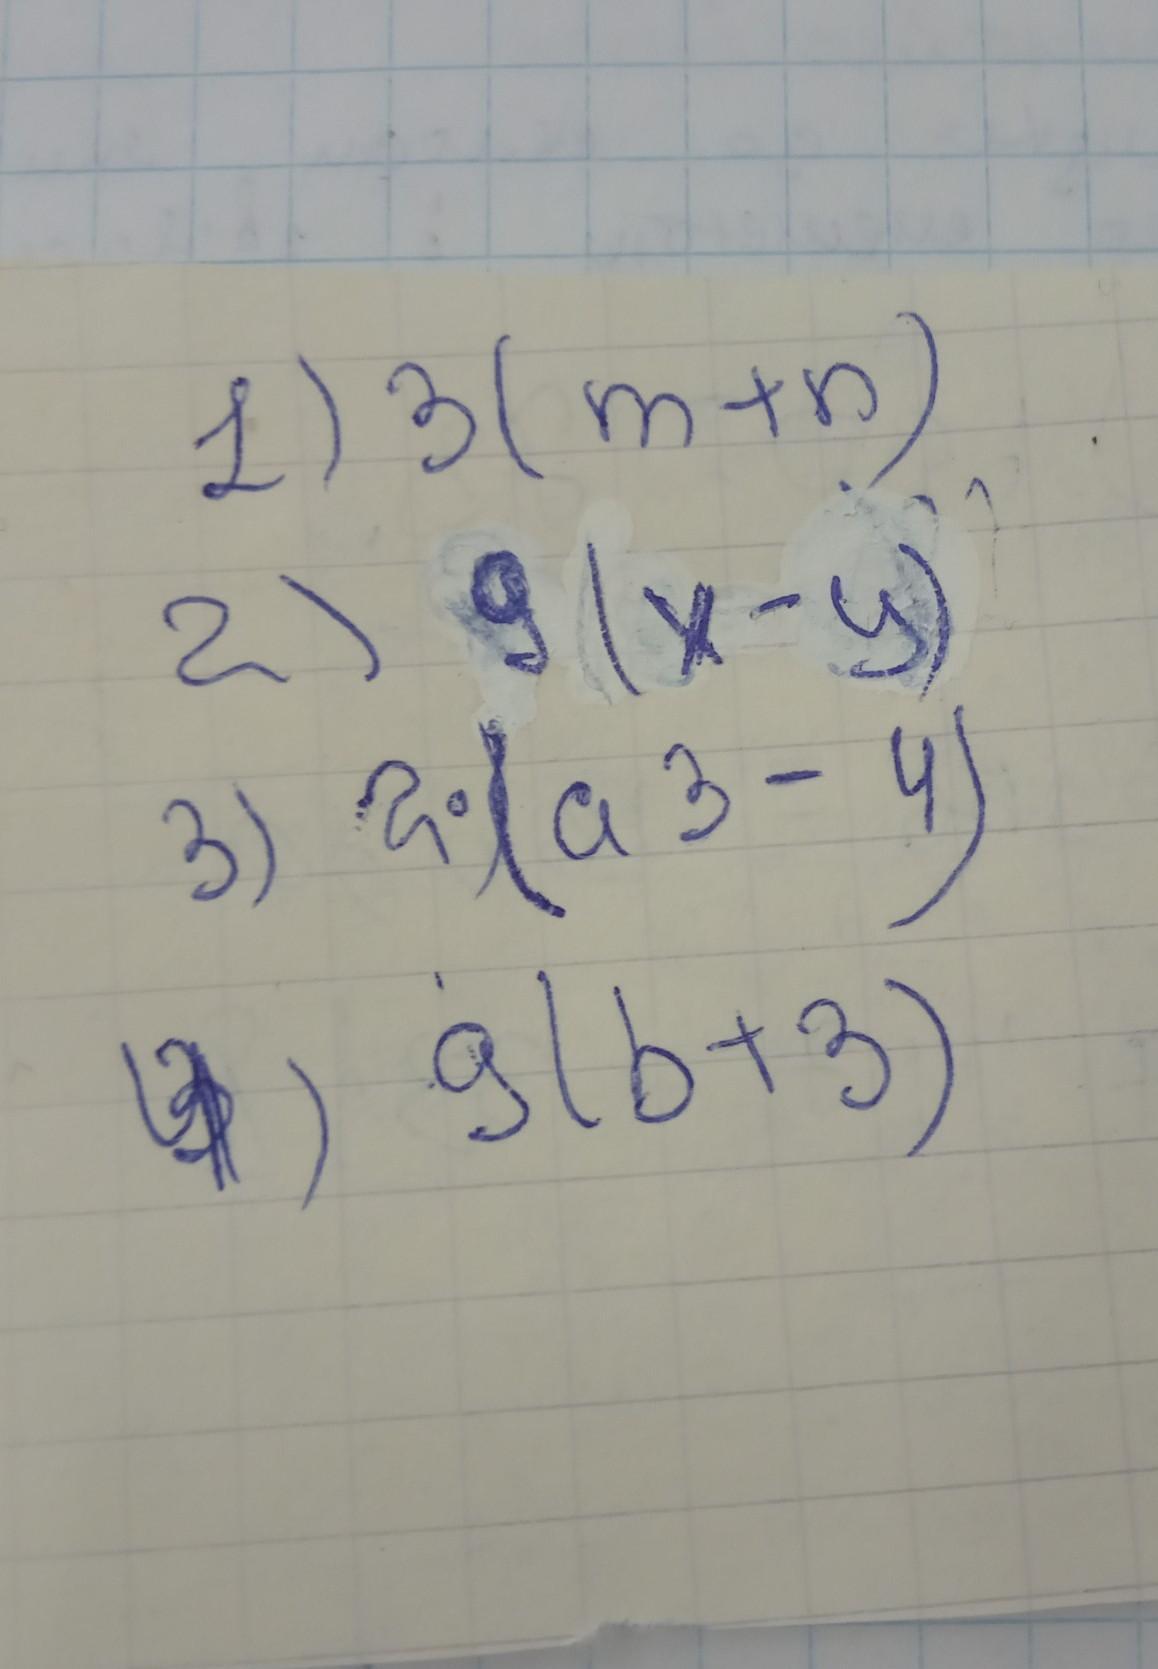 1) 3(m+n)
2) 9(x-y)
3) 2·(a3-4)
4) 9(b+3)